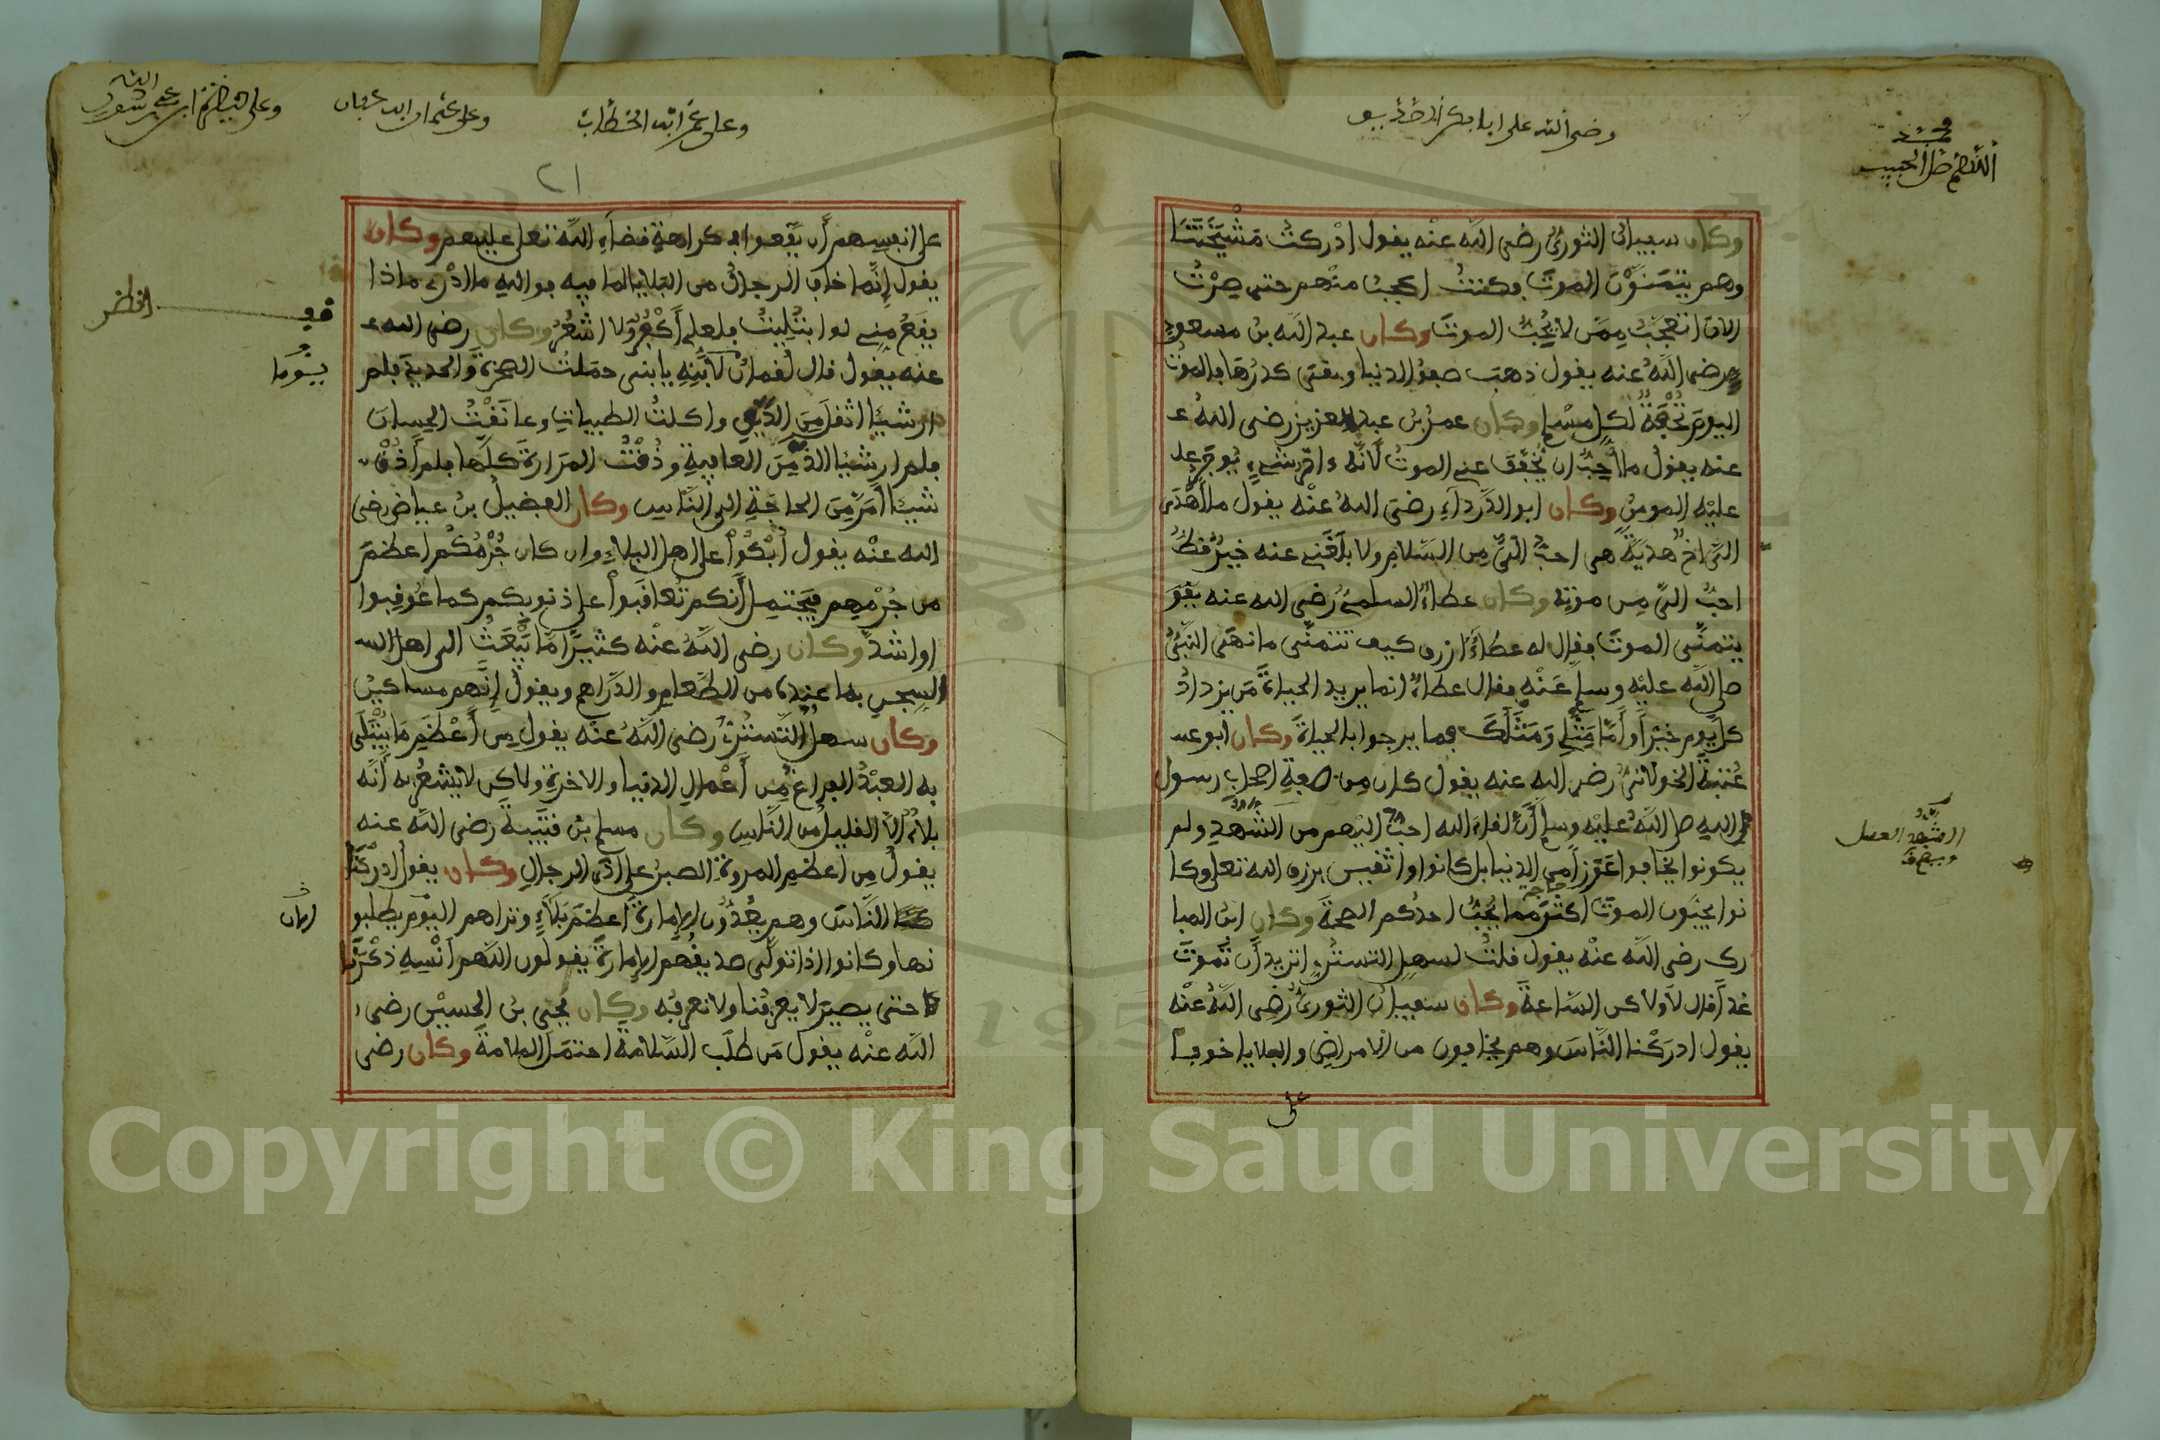 محمد
اللهم صل الحبيب
ورضي الله على ابا بكر
وكان سفيان الثوري رضى الله عنه يقول ادركت مشيختنا
وهم يتمنون الموت وكنت اعجب منهم حتى صرت
الان اتعجب ممن لا يحب الموت وكان عبد الله بن مسعود
رضى الله عنه يقول ذهب صفو الدنيا وبقى كدرها فالموت
اليوم تحفة لكل مسلم وكان عمر بن عبد العزيز رضى الله عـ
عنه يقول ما احب ان يخفف عني الموت لانه ءاخر شيء يوجر عليـ
عليه المومن وكان ابو الدرداء رضى الله عنه يقول ما اهدى
الي اخ هدية هي احب الي من السلام ولا بلغني عنه خبر قط
احب الي من موته وكان عطاء السلمي رضى الله عنه يقو
يتمنى الموت فقال له عطاء الازرق كيف تتمنى ما نهى النبي
صلى الله عليه وسلم عنه فقال عطاء انما يريد الحياة من يزداد
كل يوم خيرا واما مثلي ومثلك فما يرجوا بالحياة وكان ابو عتـ
عتبة الخولاني رضى الله عنه يقول كان من صفة اصحاب رسول
الله صلى الله عليه وسلم ان لقاء الله احب اليهم من الشهد ولم
يكونوا يخافوا عوزا من الدنيا بل كانوا واثقين برزق الله تعلى وكا
نوا يحبون الموت اكثر مما يحب احدكم الصحة وكان ابن المبا
رك رضى الله عنه يقول قلت لسهل التستري اتريد ان تموت
غدا قال لا ولاكن الساعة وكان سفيان الثوري رضى الله عنه
يقول ادركنا الناس وهم يخافون من الامراض والبلايا خوفا
على
الشهد العسل
وعلى عمر ابن الخطاب
وعلى عثمان ابن عفان
٢١
على انفسهم ان يقعوا في كراهة قضاء الله تعلى عليهم وكان
يقول انما خاف الرجال من البلايا لما فيه فوالله ما ادرى ماذا
يقع مني لو ابتليت فلعلي اكفر ولا اشعر وكان رضى الله عـ
عنه يقول قال لقمان لابنه يا بنى حملت الصخرة والحديد فلم
ار شيئا اثقل من الدين واكلت الطيبات وعانقت الحسان
فلم ار شيئا الذ من العافية وذقت المرارة كلها فلم اذق
شيئا امر من الحاجة الى الناس وكان الفضيل بن عياض رضى
الله عنه يقول ابكوا على اهل البلاء وان كان جرمكم اعظم
من جرمهم فيحتمل انكم تعاقبوا على ذنوبكم كما عوقبوا
او اشد وكان رضى الله عنه كثيرا ما يبعث الى اهل السـ
السجن بما عنده من الطعام والدراهم ويقول انهم مساكين
وكان سهل التستري رضى الله عنه يقول من اعظم ما يبتلى
به العبد الفراغ من اعمال الدنيا والاخرة ولاكن لا يشعر به انه
بلاء الا القليل من الناس وكان مسلم بن قتيبة رضى الله عنه
يقول من اعظم المروة الصبر على اذى الرجال وكان يقول ادركنا
الناس وهم يعدون الامارة اعظم بلاء وتراهم اليوم يطلبو
نها وكانوا اذا تولى صديقهم الامارة يقولون اللهم انسه ذكرنا
حتى يصير لا يعرفنا ولا نعرفه وكان يحيى بن الحسين رضى
الله عنه يقول من طلب السلامة احتمل الملامة وكان رضى